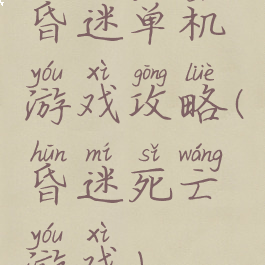 昏迷单机
yóu xì gōng lüè
游戏攻略(
hūn mí sǐ wáng
昏迷死亡
yóu xì
游戏)